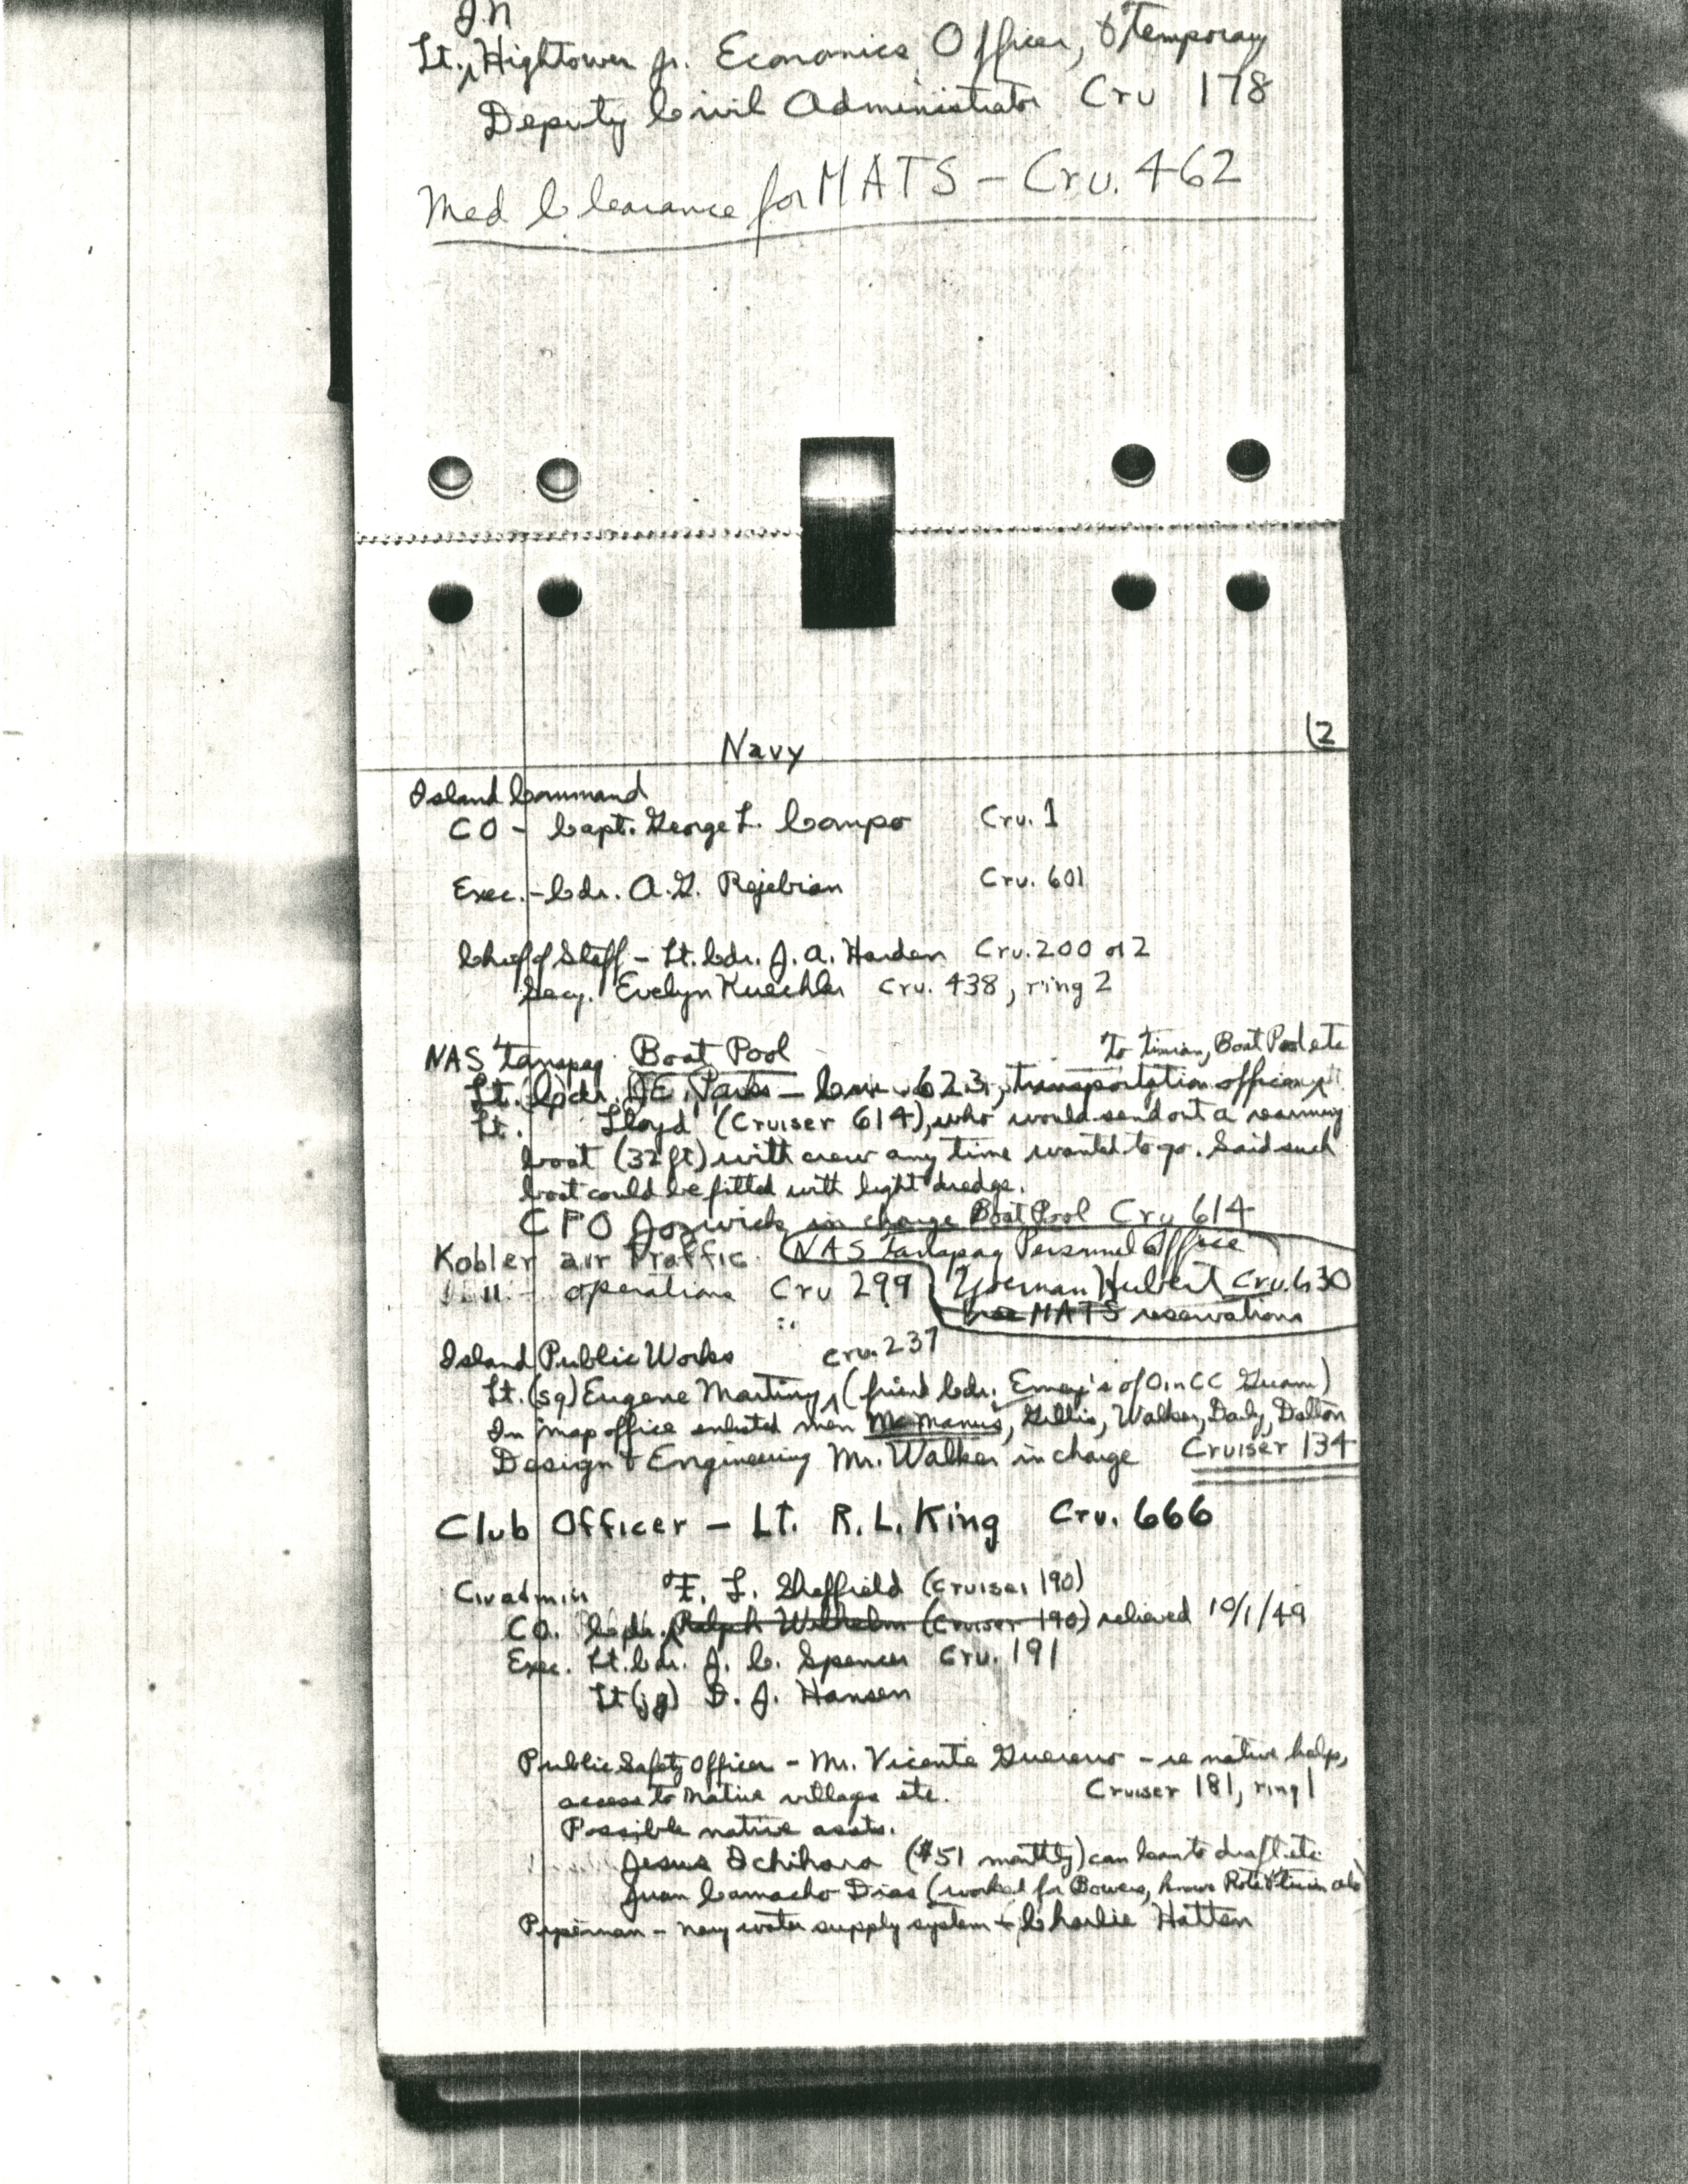 J N
Lt. Hightower Jr. Economics Officer, & temporary
Deputy Civil Administrator Cru 178
Med Clearance for MATS – Cru. 462
12
Navy
Island Command
CO – Capt. George L. Campo Cru. 1
Exec. – Cdr. A.G. Rejebian Cru. 601
Chief of Staff – Lt. Cdr. J. A. Harden Cru. 200 or 2
Secy. Evelyn Kuechler Cru. 438, ring 2
NAS Tanapag Boat Pool
To Tinian, Boat Pool etc
Lt. Cdr. Parks – Cru. 623, transportation officer
Lt. Lloyd (Cruiser 614), who would send out a
boat (32 ft) with crew any time wanted to go. Said such
boat could be fitted with light dredge.
CPO in charge Boat Pool Cru 614
Kobler air traffic
" operations Cru 299
NAS Tanapag Personnel Office
Yoeman Hubert Cru. 630
MATS reservations
Island Public Works Cru. 237
Lt. (sg) Eugene (friend Cdr. of OinCC Guam)
In map office enlisted men McManus, Gillis, Walker, Daily, Dalton
Design & Engineering Mr. Walker in charge Cruiser 134
Club Officer – Lt. R. L. King Cru. 666
Civadmin F. L. Sheffield (Cruiser 190)
CO. Cdr. Ralph Wilhelm (Cruiser 190) relieved 10/1/49
Exec. Lt. Cdr. J. C. Spencer Cru. 191
Lt (jg) D. J. Hansen
Public Safety Officer – Mr. Vicente Guerrero – re native help,
access to native villages etc. Cruiser 181, ring 1
Possible native assts.
Jesus Ichihara ($51 monthly) can learn to draft etc
Juan Camacho Dias (worked for Bowers, knows Rota & Tinian also)
Piperman – navy water supply system – Charlie Hatten